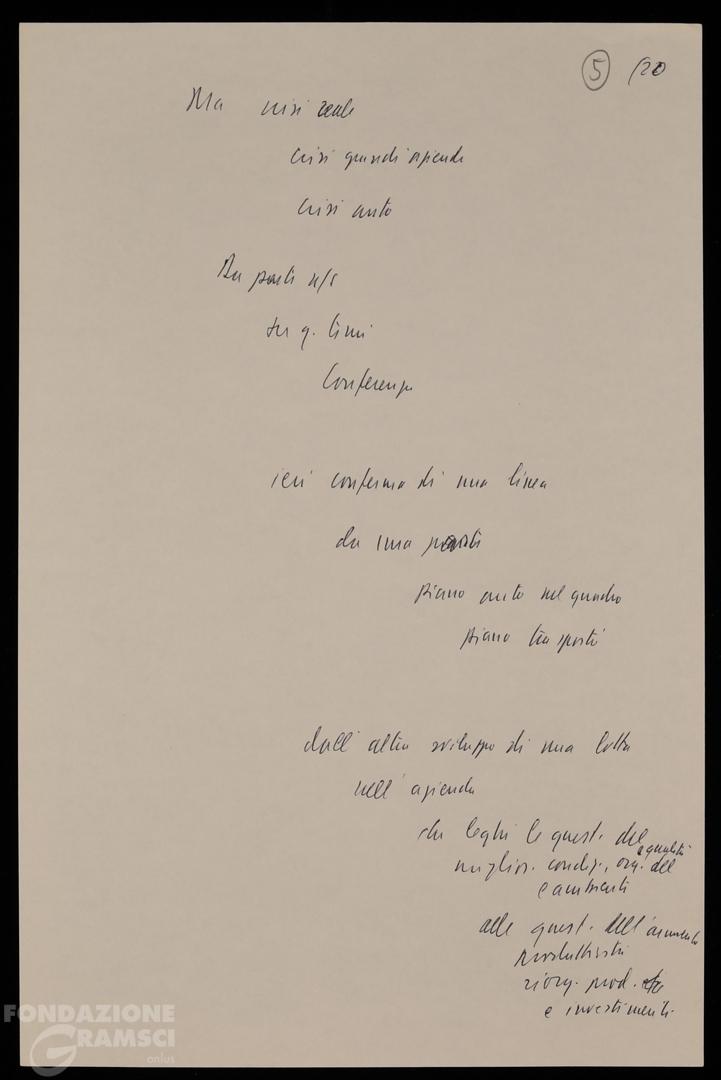 5 (20
Ma crisi reale
Crisi grandi aziende
Crisi auto
Da parte n/s
su q. temi
Conferenza
ieri conferma di una linea
da una parte
piano auto nel quadro
piano trasporti
dall'altra sviluppo di una lotta
nell'azienda
che leghi le quest. del
miglior. condiz., org. del
e qualità
e ambienti
alle quest. dell'aumento
produttività
riorg. prod.
e investimenti
FONDAZIONE
GRAMSCI
onlus